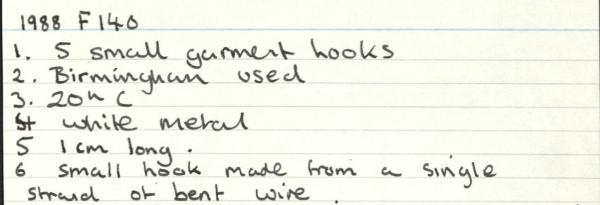 1988 F140
1. 5 small garment hooks
2. Birmingham used
3. 20th C
4 white metal
5 1cm long.
6 small hook made from a single
strand of bent wire.